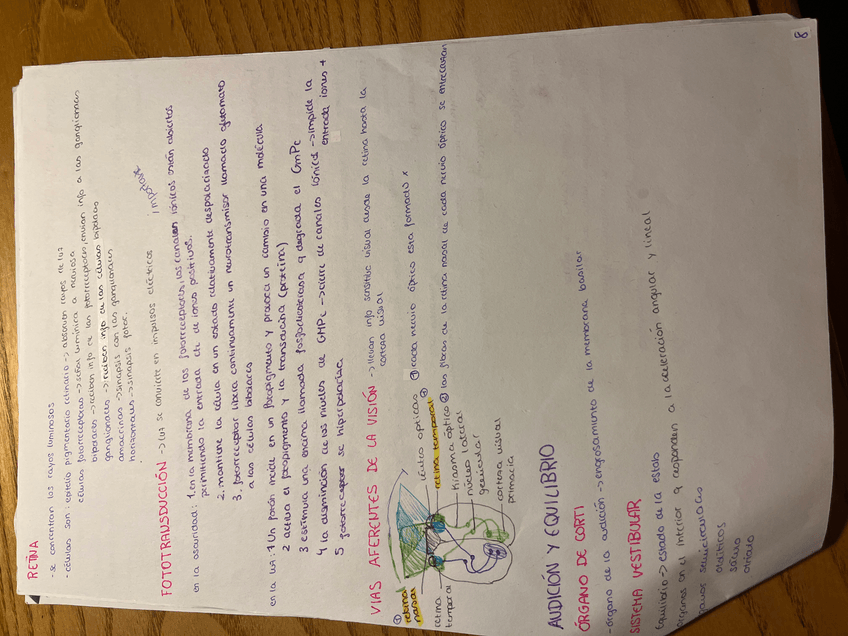 RETINA
- se concentran los rayos luminosos
- células son: epitelio pigmentario retinario -> absorven rayos de luz
células fotorreceptoras -> señal lumínica a nerviosa
bipolares -> reciben info de las fotorreceptoras, envian info a las ganglionares
ganglionares -> reciben info de las células bipolares
amacrinas -> sinapsis con las ganglionares
horizontales -> sinapsis fotor.
FOTOTRANSDUCCIÓN -> luz se convierte en impulsos eléctricos
en la oscuridad: 1. en la membrana de los fotorreceptores, los canales iónicos están abiertos
permitiendo la entrada de iones positivos.
2. mantiene la célula en un estado relativamente despolarizado
3. fotorreceptor libera continuamente un neurotransmisor llamado glutamato
a las células bipolares
en la luz: 1 Un fotón incide en un fotopigmento y provoca un cambio en una molécula
2 activa el fotopigmento y la transducina (proteína)
3 estimula una encima llamada fosfodiesterasa q degrada el GMPc
4 la disminución de los niveles de GMPc -> cierre de canales iónicos -> impide la
entrada iones +
5 fotorreceptor se hiperpolariza
VIAS AFERENTES DE LA VISIÓN -> llevan info sensitiva visual desde la retina hasta la
corteza visual
① retina nasal
retina temporal
① cada nervio óptico esta formado x
retina temporal ②
kiasma óptico ② las fibras de la retina nasal de cada nervio óptico se entrecruzan
núcleo lateral
genicular
corteza visual
primaria
AUDICIÓN Y EQUILIBRIO
ÓRGANO DE CORTI
- órgano de la audición -> engrosamiento de la membrana basilar
SISTEMA VESTIBULAR
Equilibrio -> estado de la
órganos en el interior q responden a la aceleración angular y lineal
otolíticos
sáculo
utrículo
8